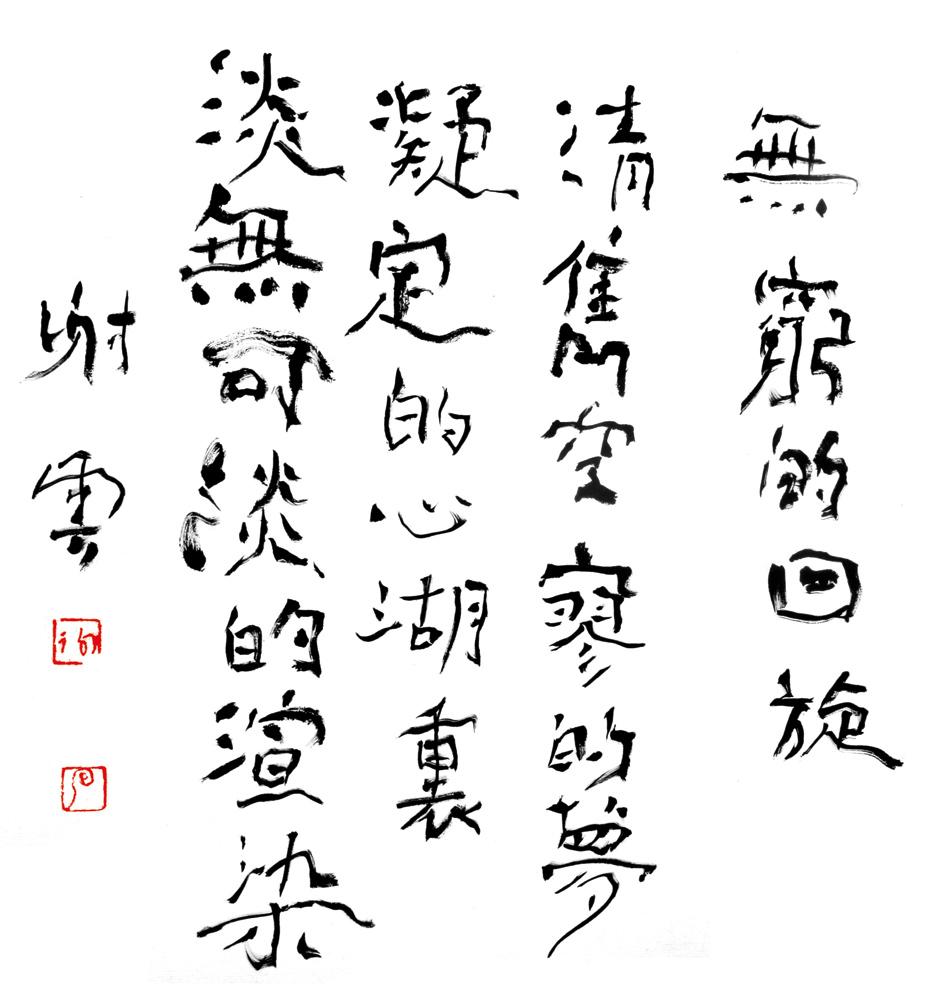 無窮的回旋
清雋空寥的夢
凝定的心湖裏
淡無可淡的渲染
謝雲